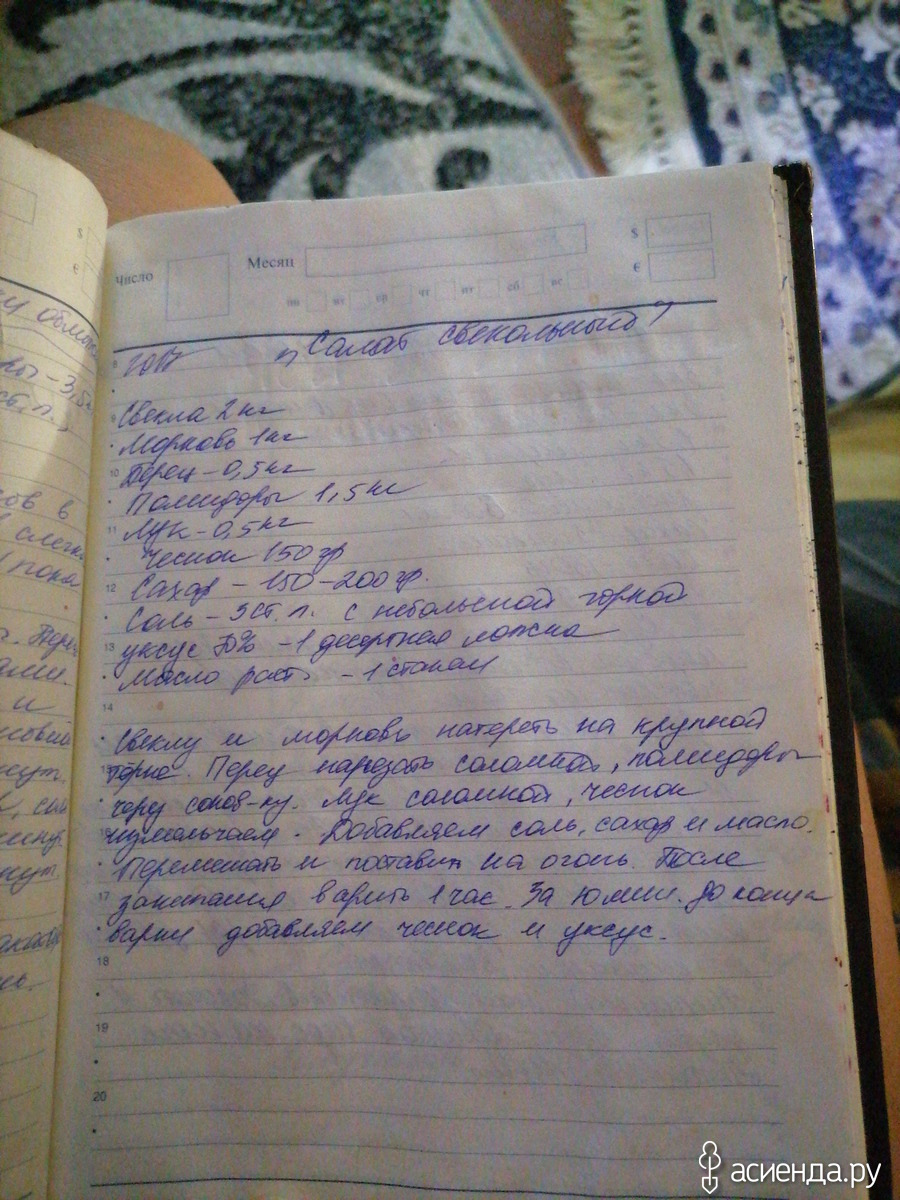 $
€
Число
Месяц
$
€
пн вт ср чт пт сб вс
8 2017 „Салат свекольный”
9 Свекла 2 кг
Морковь 1 кг
10 Перец - 0,5 кг
Помидоры 1,5 кг
11 Лук - 0,5 кг
Чеснок 150 гр
12 Сахар - 150-200 гр.
Соль - 3 ст. л. с небольшой горкой
13 уксус 70% - 1 десертная ложка
Масло раст - 1 стакан
14
Свеклу и морковь натереть на крупной
терке. Перец нарезать соломкой, помидоры
через соков-ку. Лук соломкой, чеснок
16 измельчаем. Добавляем соль, сахар и масло.
Перемешать и поставить на огонь. После
17 закипания варить 1 час. За 10 мин. до конца
варки добавляем чеснок и уксус.
18
19
20
асиенда.ру